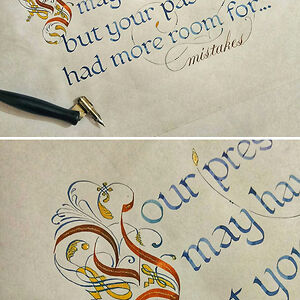 may
but your pas
had more room for...
mistakes
our pres
may hav
t you